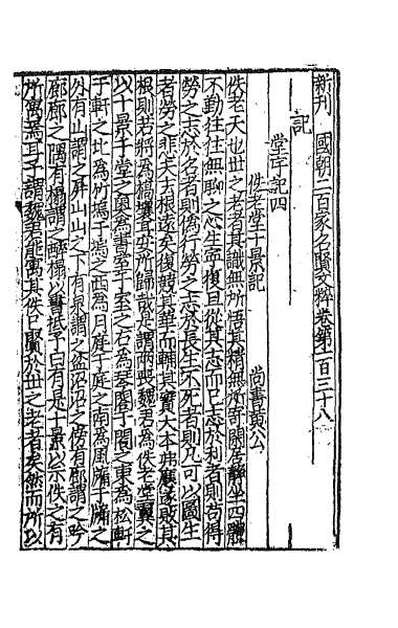 新刊國朝二百家名賢文粹卷第一百三十八
記
堂宇記四
佚老堂十景記
尚書黃公
佚老天也世之老者其識無所悟其精無所寄閑居靜坐四體
不勤往往無聊之心生寧復且從其志而已志於利者則苟得
勞之志於名者則僞行勞之志於長生不死者則凡可以圖生
者勞之悲夫去根遠矣復競其華而輔其實大本弗癈遂敗其
根則若將爲楊攘耳亦所歸哉是謂兩喪魏君爲佚老堂翼之
以十景千堂之奧爲書室于室之右爲琴閣于閣之東爲松軒
于軒之北爲竹塢于塢之西爲月庭于庭之南爲風牖于牖之
外有山謂之屏山山之下有泉謂之盆沼沼之傍有廊謂之吟
廊廊之隅有榻謂之醉榻以書抵予曰有是十景以示佚之有
所寓焉耳予謂魏君能寓其佚已賢於世之老者矣然而所以